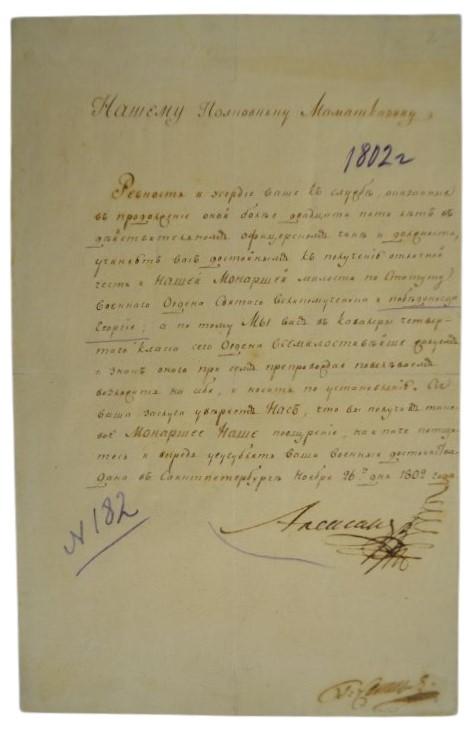 Нашему Полковнику Маматказину,
1802 г
Ревность и усердіе ваше къ службѣ, оказанные
въ продолженіе оной болѣе двадцати пяти лѣтъ въ
дѣйствительномъ офицерскомъ чинѣ и должности,
учиняютъ васъ достойнымъ къ полученію отличной
чести и Нашей Монаршей милости по Статуту
военнаго Ордена Святаго Великомученика и побѣдоносца
Георгія; а по тому Мы васъ въ кавалеры четвер-
таго класса сего Ордена Всемилостивѣйше
и знакъ онаго при семъ препровождая повелѣваемъ
возложить на себя, и носить по установленію. Сія
ваша заслуга увѣряетъ Насъ, что вы получа тако-
вое Монаршее Наше поощреніе, на и паче потщи-
тесь и впредь усугублять ваши военныя достоинства.
Дана въ Санктпетербургѣ Ноября 26го дня 1802 года
N 182
Александръ